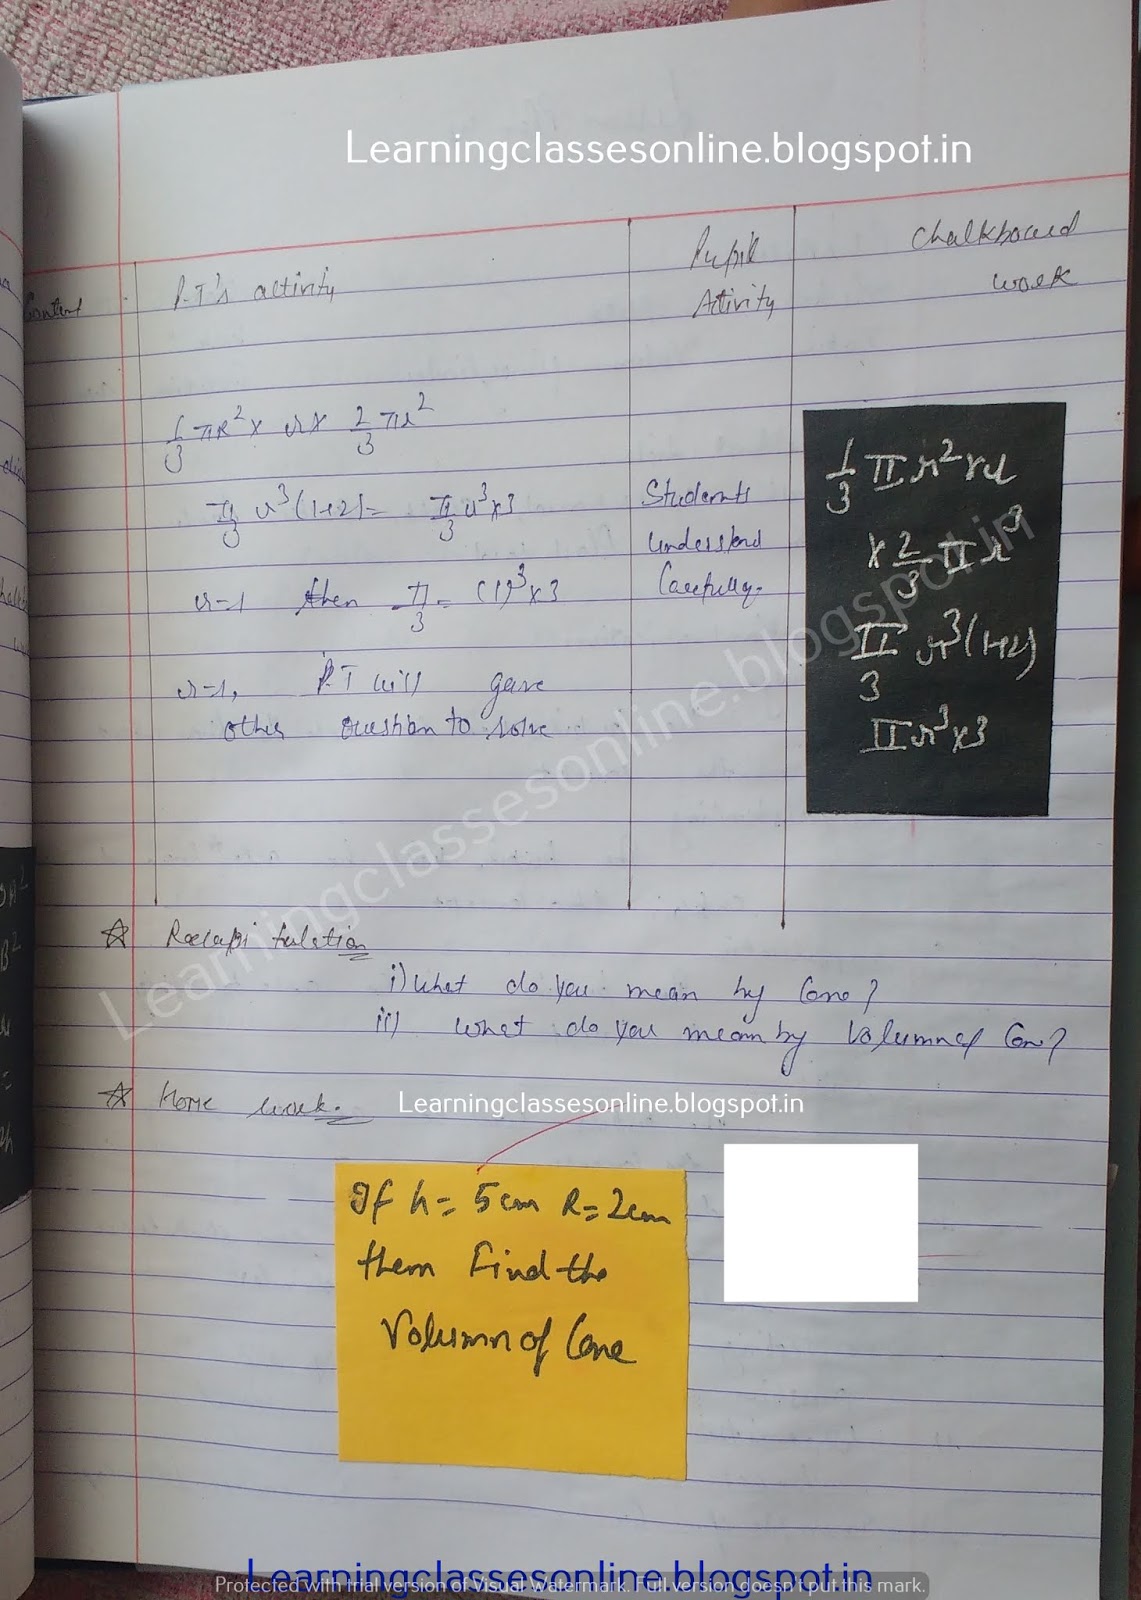 Learningclassesonline.blogspot.in
Content
P.T's activity
Pupil
Activity
Chalkboard
work
1/3 πr² x r x 2/3 πr²
π/3 r³(1+2) = π/3 r³x3
r=1 then π/3 = (1)³x3
r=1, P.T will gave
other question to solve
Students
understand
Carefully.
1/3 π r² x r
x 2/3 π r³
π/3 r³(1+2)
π r³x3
Learningclassesonline.blogspot.in
☆ Recapitulation
i) What do you mean by Cone?
ii) What do you mean by Volumn of Cone?
☆ Home work.
Learningclassesonline.blogspot.in
If h = 5cm R = 2cm
them Find the
Volumn of Cone
Learningclassesonline.blogspot.in
Protected with trial version of Visual Watermark. Full version doesn't put this mark.